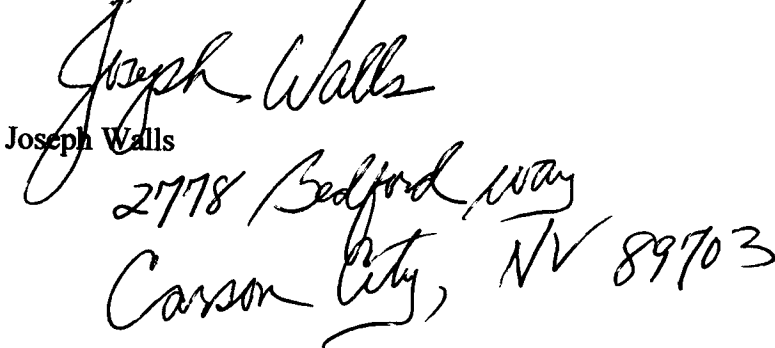 Joseph Walls
Joseph Walls
2778 Bedford way
Carson City, NV 89703